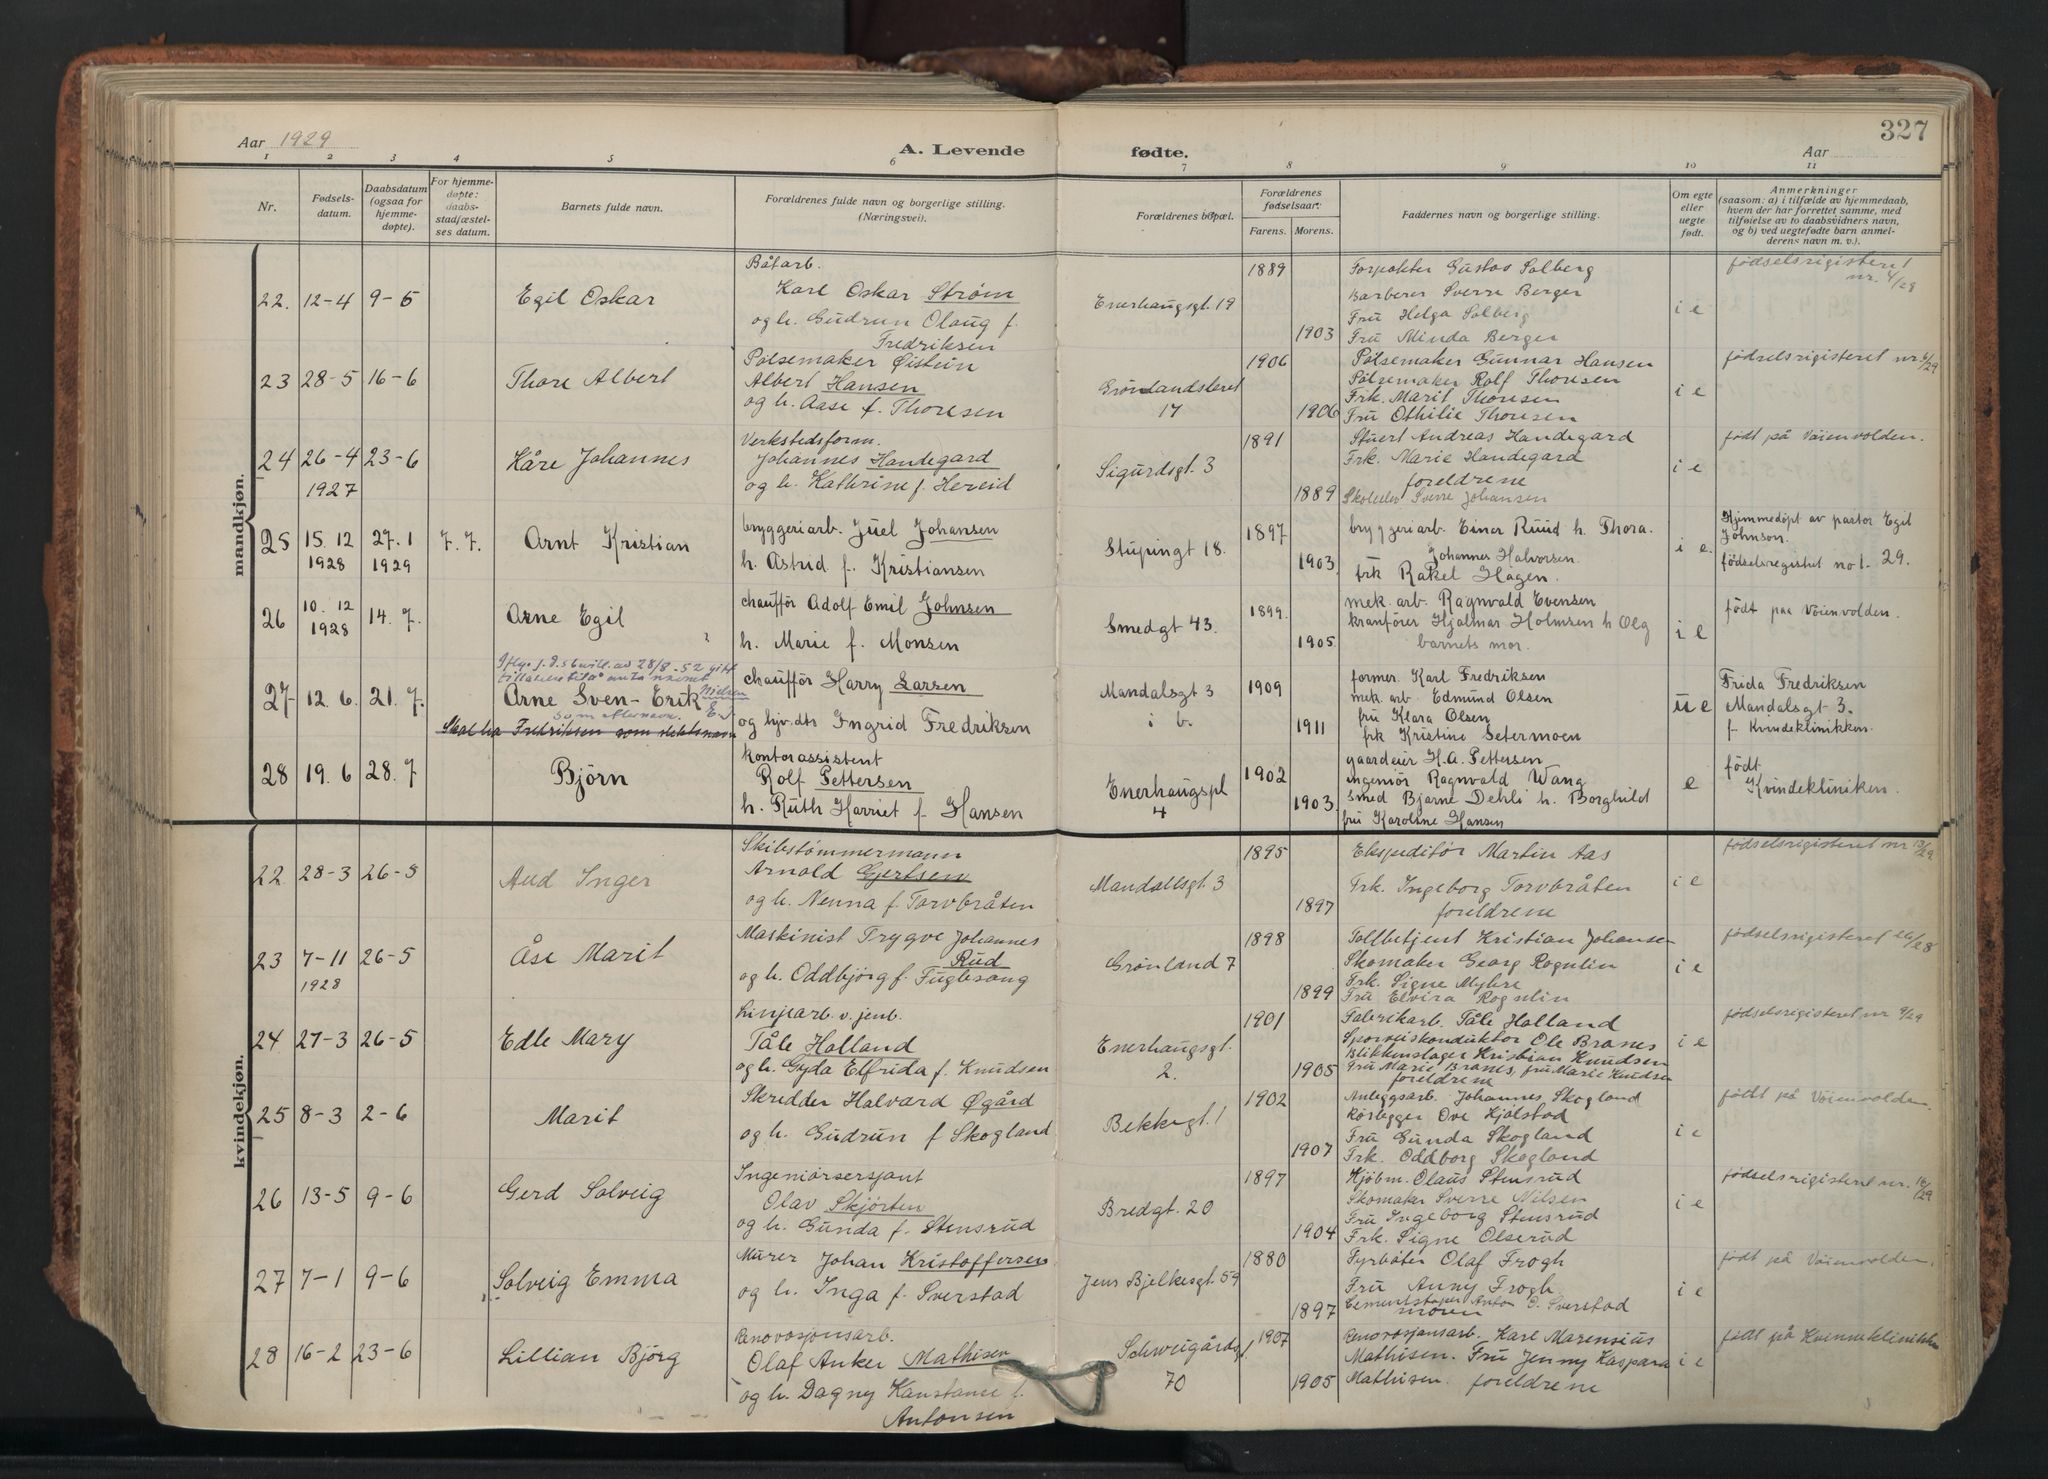 Aar 1929
A. Levende
fødte.
Aar
327
1 2 3 4 5 6 7 8 9 10 11
Nr.
Fødsels-
datum.
Daabsdatum
(ogsaa for
hjemme-
døpte).
For hjemme-
døpte:
daabs-
stadfæstel-
ses datum.
Barnets fulde navn.
Forældrenes fulde navn og borgerlige stilling.
(Næringsvei).
Forældrenes bopæl.
Forældrenes
fødselsaar:
Farens. Morens.
Faddernes navn og borgerlige stilling.
Om egte
eller
uegte
født.
Anmerkninger
(saasom: a) i tilfælde av hjemmedaab,
hvem der har forrettet samme, med
tilføielse av to daabsvidners navn,
og b) ved uegtefødte barn anmel-
derens navn m. v.).
mandkjøn.
22. 12-4 9-6 Egil Oskar
Båtarb.
Karl Oskar Strøm
og h. Gudrun Olaug f.
Fredriksen
Enerhaugsgt. 19
1889
1903
Forpakter Gustav Solberg
Barberer Sverre Berger
Fru Helga Solberg
Fru Minda Berger
i e
fødselsregisteret
nr. 4/29
23 28-5 16-6 Thore Albert
Pølsemaker Øistein
Albert Hansen
og h. Aase f. Thoresen
Grønlandsleret
17
1906
1906
Pølsemaker Gunnar Hansen
Pølsemaker Rolf Thoresen
Frk. Marit Thoresen
Fru Othilie Thoresen
i e
fødselsregisteret nr. 6/29
24 26-4 23-6 Kåre Johannes
1927
Verkstedsform.
Johannes Handegard
og h. Kathrine f. Hereid
Sigurdsgt. 3
1891
1889
Stuert Andreas Handegard
Frk. Marie Handegard
foreldrene
Skoleelev Sverre Johansen
i e
født på Vöienvolden.
25 15. 12 27. 1 7. 7. Arnt Kristian
1928 1929
bryggeriarb. Juel Johansen
h. Astrid f. Kristiansen
Stupingt 18.
1897
1903
bryggeriarb. Einer Ruud h. Thora.
Johannes Halvorsen.
frk Rakel Hagen.
i e.
Hjemmedöpt av pastor Egil
Johnson.
fødselsregistret no 1-29.
26 10. 12 14. 7. Arne Egil
1928
chauffør Adolf Emil Johnsen
h. Marie f. Monsen
Smedgt 43.
1899.
1905
mek. arb. Ragnvald Evensen
kranfører Hjalmar Holmsen h Olg
barnets mor.
i e
født paa Vöienvolden.
27- 12. 6. 21. 7. Arne Sven-Erik Nielsen
som efternavn.
Skal ha Fredriksen som slektsnavn
chauffør Harry Larsen
og hjv.dts Ingrid Fredriksen
Mandalsgt 3
i b.
1909
1911
former Karl Fredriksen
mek. arb. Edmund Olsen
fru Klara Olsen
frk Kristine Setermoen
u e
Frida Fredriksen
Mandalsgt 3.
f. Kvindeklinikken.
28 19. 6 28. 7 Björn
kontorassistent
Rolf Pettersen
h. Ruth Harriet f. Hansen
Enerhaugspl
4
1902
1903
gaardeier H. A. Pettersen
ingeniør Ragnvald Wang
smed Bjarne Dehli h. Borghild
fru Karoline Hansen
e
født
Kvindekliniken.
kvindekjøn.
22 28-3 26-5 Aud Inger
Skibstømmermann
Arnold Gjertsen
og h. Nenna f. Torvbråten
Mandallsgt. 3
1895
1897
Ekspeditør Martin Aas
Frk. Ingeborg Torvbråten
foreldrene
i e
fødselsregisteret nr 13/29
23 7-11 26-5 Åse Marit
1928
Maskinist Trygve Johannes
Rud
og h. Oddbjørg f. Fuglesang
Grønland 7
1898
1899
Tollbetjent Kristian Johansen
Skomaker Georg Rognlin
Frk. Signe Myhre
Fru Elvira Rognlin
i e
fødselsregisteret 26/28
24 27-3 26-5 Edle Mary
Linjearb. v. jenb.
Tåle Holland
og h. Gyda Elfrida f. Knudsen
Enerhaugsgt.
2.
1901
1905
Fabrikarb. Tåle Holland
Sporveiskonduktør Ole Branes
Blikkenslager Kristian Knudsen
Fru Marie Branes, fru Marie Knudsen
foreldrene
i e
fødselsregisteret nr 9/29
25 8-3 2-6 Marit
Skredder Halvard Øgård
og h. Gudrun f Skogland
Bekkegt. 1
1902
1907
Anleggsarb. Johannes Skogland
Rørlegger Ove Hjølstad
Fru Gunda Skogland
Frk. Oddborg Skogland
i e
født på Vöienvolden.
26 13-5 9-6 Gerd Solveig
Ingeniørsersjant
Olav Skjørten
og h. Gunda f. Stensrud
Bredgt. 20
1897
1904
Kjøbm. Olaus Stensrud
Skomaker Sverre Nilsen
Fru Ingeborg Stensrud
Frk. Signe Olserud
i e
fødselsregisteret nr. 16/29
27 7-1 9-6 Solveig Emma
Murer Johan Kristoffersen
og h. Inga f. Sverstad
Jens Bjelkesgt. 59
1880
1897
Fyrbøter Olaf Frogh
Fru Anny Frogh
Sverstad
moren
i e
født på Vöienvolden.
28 16-2 23-6 Lillian Bjørg
Renovasjonsarb.
Olaf Anker Mathisen
og h. Dagny Kanstanse f.
Antonsen
Schweigårdsgt
70
1907
1905
Renovasjonsarb. Karl Marensius
Mathisen. Fru Jenny Kaspara
Mathisen. foreldrene
i e
født på Kvinneklinikken